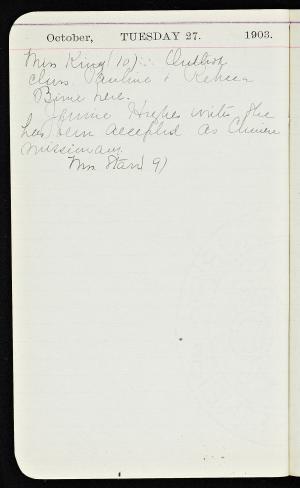 October, TUESDAY 27. 1903.
Mrs King (10).
class. Pauline & Rebecca
Birnie here.
Jennie Hughes writes she
has been accepted as Chinese
missionary.
Mrs Starr 9)